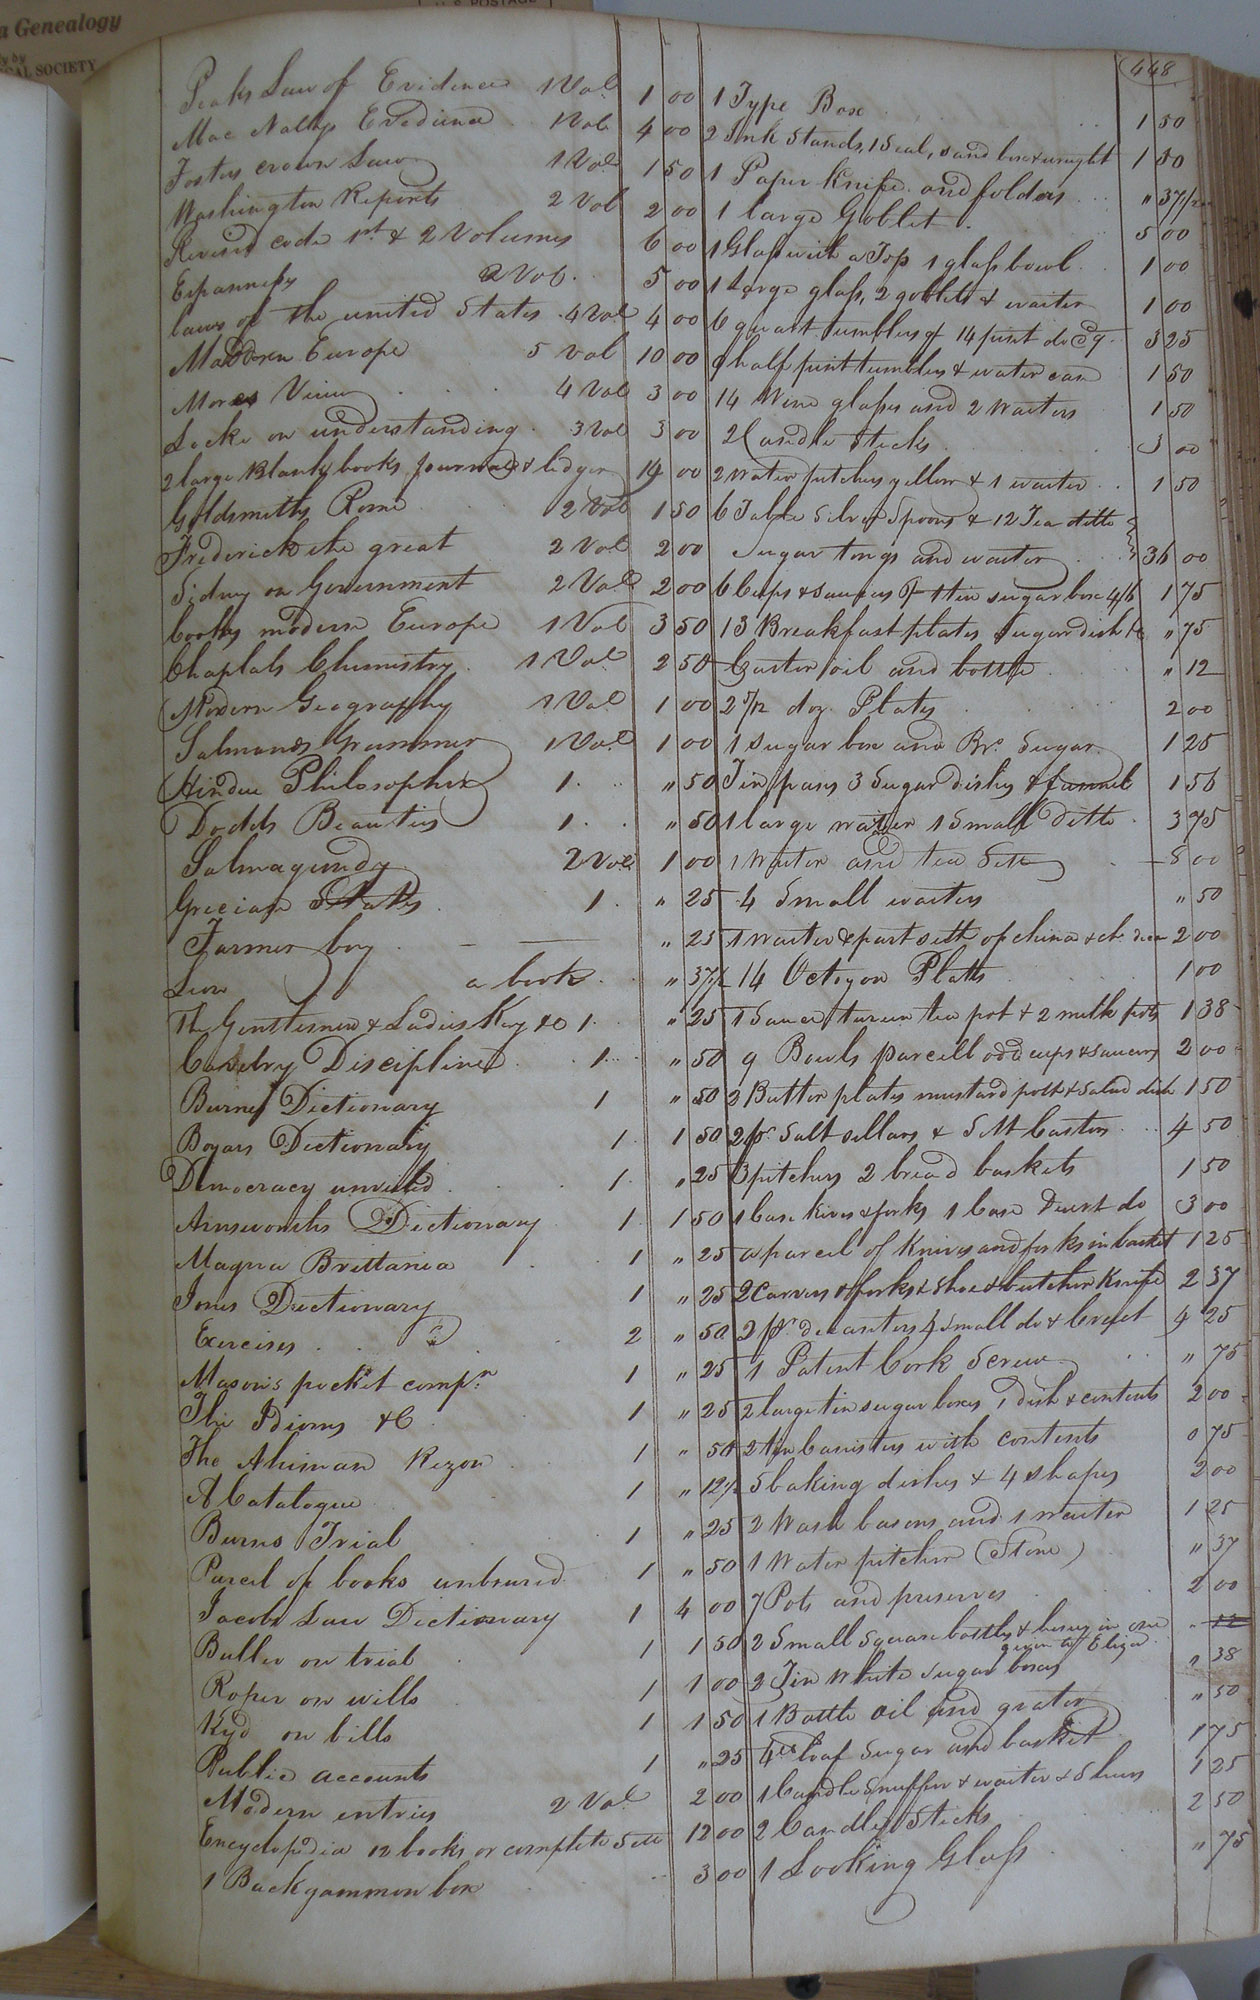 a Genealogy
by
CAL SOCIETY
U.S. POSTAGE
448
Peaks Law of Evidence 1 Vol. 1 00
Mac Nallys Evidence 1 Vol. 4 00
Fosters crown Law 1 Vol 1 50
Washington Reports 2 Vol 2 00
Revised code 1st & 2 Volumes 6 00
Espannesy 2 Vol. 5 00
laws of the united States 4 Vol 4 00
Maddern Europe 5 Vol 10 00
Mores View 4 Vol 3 00
Locke on understanding 3 Vol 3 00
2 large Blank books Journal & ledger 14 00
Goldsmiths Rome 2 Vol 1 50
Frederick the great 2 Vol 2 00
Sidney on Government 2 Vol 2 00
Cooks modern Europe 1 Vol 3 50
Chaptals Chemistry 1 Vol. 2 50
Modern Geography 1 Vol 1 00
Salmands Grammer 1 Vol 1 00
Hindue Philosopher 1 " 50
Dodds Beauties 1 " 50
Salmagundy 2 Vols 1 00
Grecian States 1 " 25
Farmer boy " 25
Leon a book " 37½
The Gentlemens & Ladies Key &c 1 " 25
Cavelry Discipline 1 " 50
Burnes Dictionary 1 " 50
Boyars Dictionary 1 1 50
Democracy unveiled 1 " 25
Arnsworths Dictionary 1 1 50
Magna Brettania 1 " 25
Jones Dictionary 1 " 25
Exercises 2 " 50
Masons pocket compn 1 " 25
The Idioms &C 1 " 25
The Ahiman Rezon 1 " 50
A Catalogue 1 " 12½
Burns Trial 1 " 25
Parcel of books unbound 1 " 50
Jacobs Law Dictionary 1 4 00
Buller on trial 1 1 50
Roper on wills 1 1 00
Kyd on bills 1 1 50
Public accounts 1 " 25
Modern entries 2 Vol 2 00
Encyclopedia 12 books or complete Sett 12 00
1 Backgammon box 3 00
1 Type Box 1 50
2 Ink Stands, 1 Seal, sand box & weight 1 50
1 Paper Knife and folders " 37½
1 large Goblet 5 00
1 Glass with a Top 1 glass bowl 1 00
1 Large glass, 2 goblets & waiter 1 00
6 quart tumblers of 14 pint do 3 25
9 half pint tumblers & water can 1 50
14 Wine glasses and 2 Waiters 1 50
2 Candle Sticks 3 00
2 Water pitchers yellow & 1 waiter 1 50
6 Table Silver Spoons & 12 Tea ditto
Sugar tongs and waiter 36 00
6 Cups & saucers & 1 tin sugar box 4/6 1 75
13 Breakfast plates Sugar dish &c " 75
Castor oil and bottle " 12
2 5/12 doz. Plates 2 00
1 Sugar box and Br. Sugar 1 25
Tin pans 3 Sugar dishes & funnel 1 56
1 large waiter 1 Small Ditto 3 75
1 Waiter and tea Sett 5 00
4 Small waiters " 50
1 Waiter & part sett of china & ch. 2 00
14 Octogon Platts 1 00
1 Sauce tureen tea pot & 2 milk pots 1 38
9 Bowls parcell odd cups & Saucers 2 00
2 Butter plates mustard pott & Salad dish 1 50
2 pr Salt sellars & Sett Castors 4 50
3 pitchers 2 bread baskets 1 50
1 Case Knives & forks 1 Case Desert do 3 00
a parcel of Knives and forks in basket 1 25
2 Carvers & forks & Shoe & butcher Knife 2 37
2 pr decanters 4 small do & Cruet 4 25
1 Patent Cork Screw " 75
2 large tin sugar boxes 1 dish & contents 2 00
2 tin Cannisters with contents 0 75
5 baking dishes & 4 shapes 2 00
2 Wash basons and 1 waiter 1 25
1 Water pitcher (Stone) " 37
7 Pots and preserves 2 00
2 Small Square bottles & in one 12
given to Eliza
2 Tin White Sugar boxes " 38
1 Bottle oil and grater " 50
4 lbs loaf Sugar and basket 1 75
1 Candle Snuffer & waiter & Shears 1 25
2 Candle Sticks 2 50
1 Looking Glass " 75